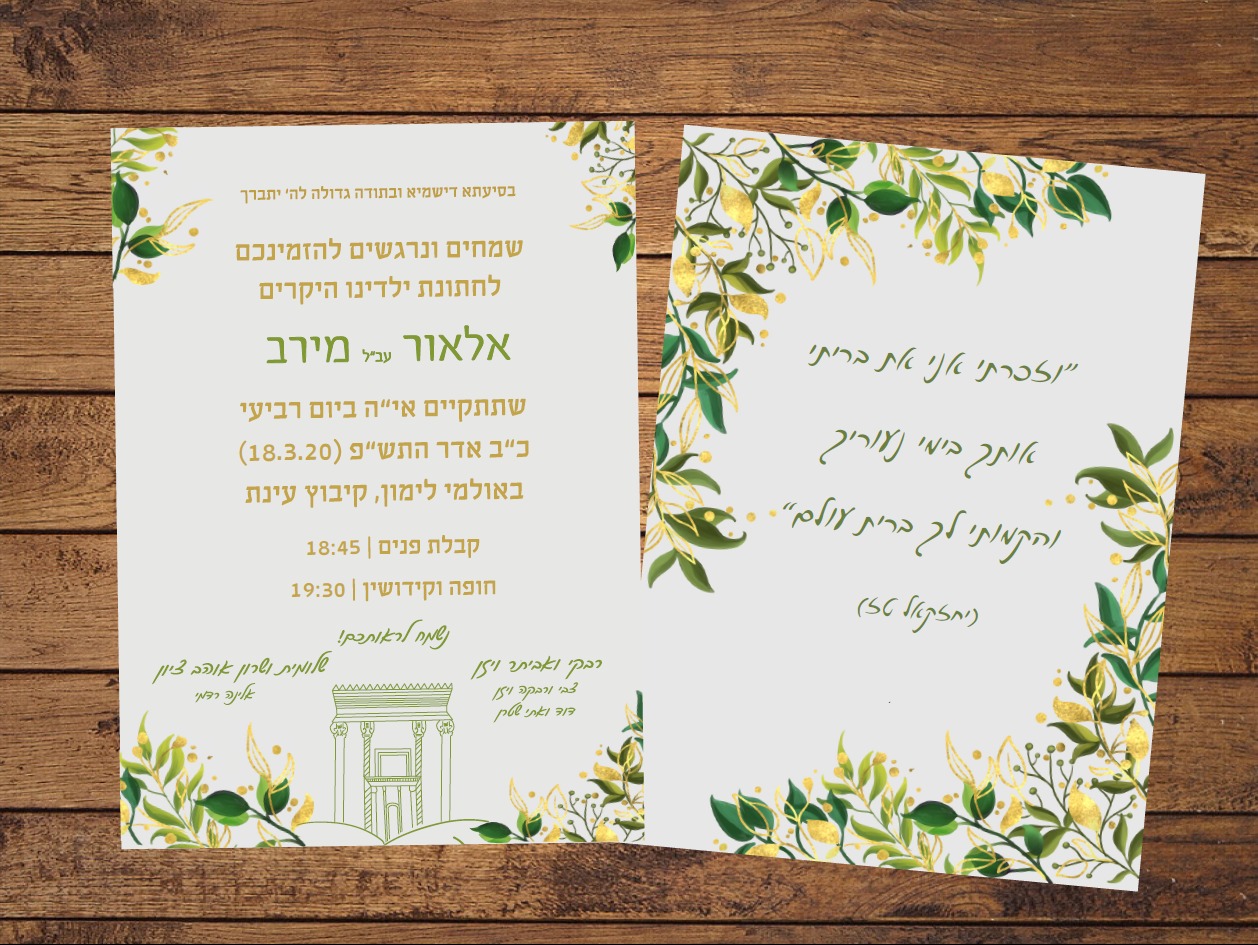 בסיעתא דישמיא ובתודה גדולה לה׳ יתברך
שמחים ונרגשים להזמינכם
לחתונת ילדינו היקרים
אלאור עב״ל מירב
שתתקיים אי״ה ביום רביעי
כ״ב אדר התש״פ (18.3.20)
באולמי לימון, קיבוץ עינת
קבלת פנים | 18:45
חופה וקידושין | 19:30
נשמח לראותכם!
רבקי ואביתר ויזן
צבי ורבקה ויזן
דוד ואתי שטרן
שלומית ושרון אוהב ציון
אלינה רדמי
״וזכרתי אני את בריתי
אותך בימי נעוריך
והקמותי לך ברית עולם״
(יחזקאל טז)